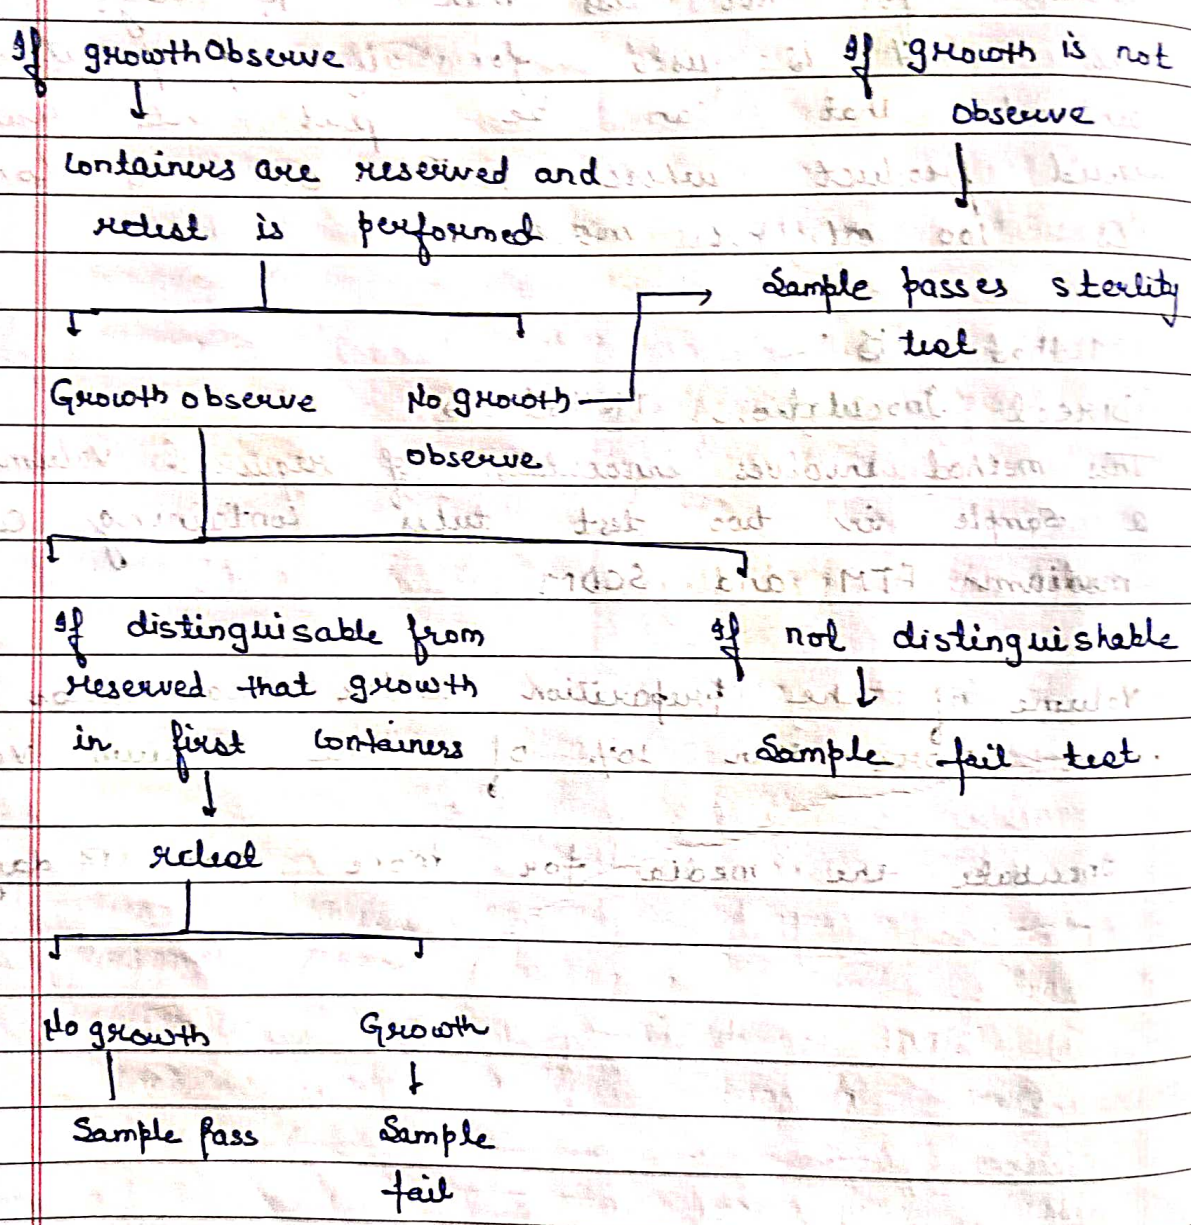 If growth Observe
If growth is not
observe
Containers are reserved and
retest is performed
Sample passes sterlity
test
Growth observe
No growth
observe
If distinguisable from
reserved that growth
in first Containers
If not distinguishable
Sample fail test.
retest
No growth
Growth
Sample Pass
Sample
fail